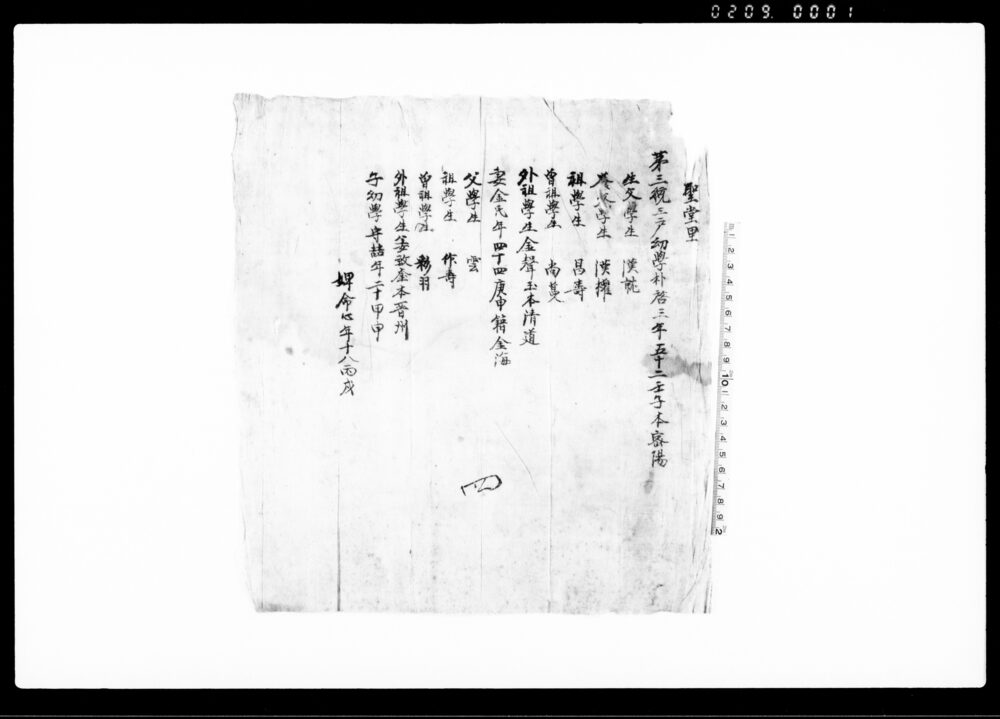 0209. 0001
聖堂里
第三統三戶幼學朴啓三年五十二壬子本密陽
生父學生 漢
養父學生 漢耀
祖學生 昌壽
曾祖學生 尚
外祖學生金聲玉本清道
妻金氏年四十四庚申籍金海
父學生 雲
祖學生 作壽
曾祖學生 彩羽
外祖學生姜致奎本晉州
子幼學守喆年二十甲申
婢命心年十八丙戌
四
1 2 3 4 5 6 7 8 9 10 1 2 3 4 5 6 7 8 9 2